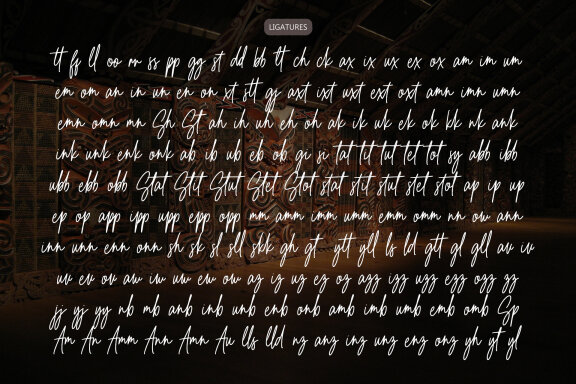 LIGATURES
tt ff ll oo rr ss pp gg st dd bb lt ch ck ax ix ux ex ox am im um
em om an in un en on xt stt gj axt ixt uxt ext oxt amn imn umn
emn omn mn Sh St ah ih uh eh oh ak ik uk ek ok kk nk ank
ink unk enk onk ab ib ub eb ob gi si tat tit tut tet tot sy abb ibb
ubb ebb obb Stat Stit Stut Stet Stot stat stit stut stet stot ap ip up
ep op app ipp upp epp opp mm amm imm umm emm omm nn ow ann
inn unn enn onn sh sk sl sll skk gh gt ytt yll ls ld gtt gl gll av iv
uv ev ov aw iw uw ew ow az iz uz ez oz azz izz uzz ezz ozz gg
jj yj yy nb mb anb inb unb enb onb amb imb umb emb omb Sp
Am An Amm Ann Amn Au lls lld nz anz inz unz enz onz yh yt yl